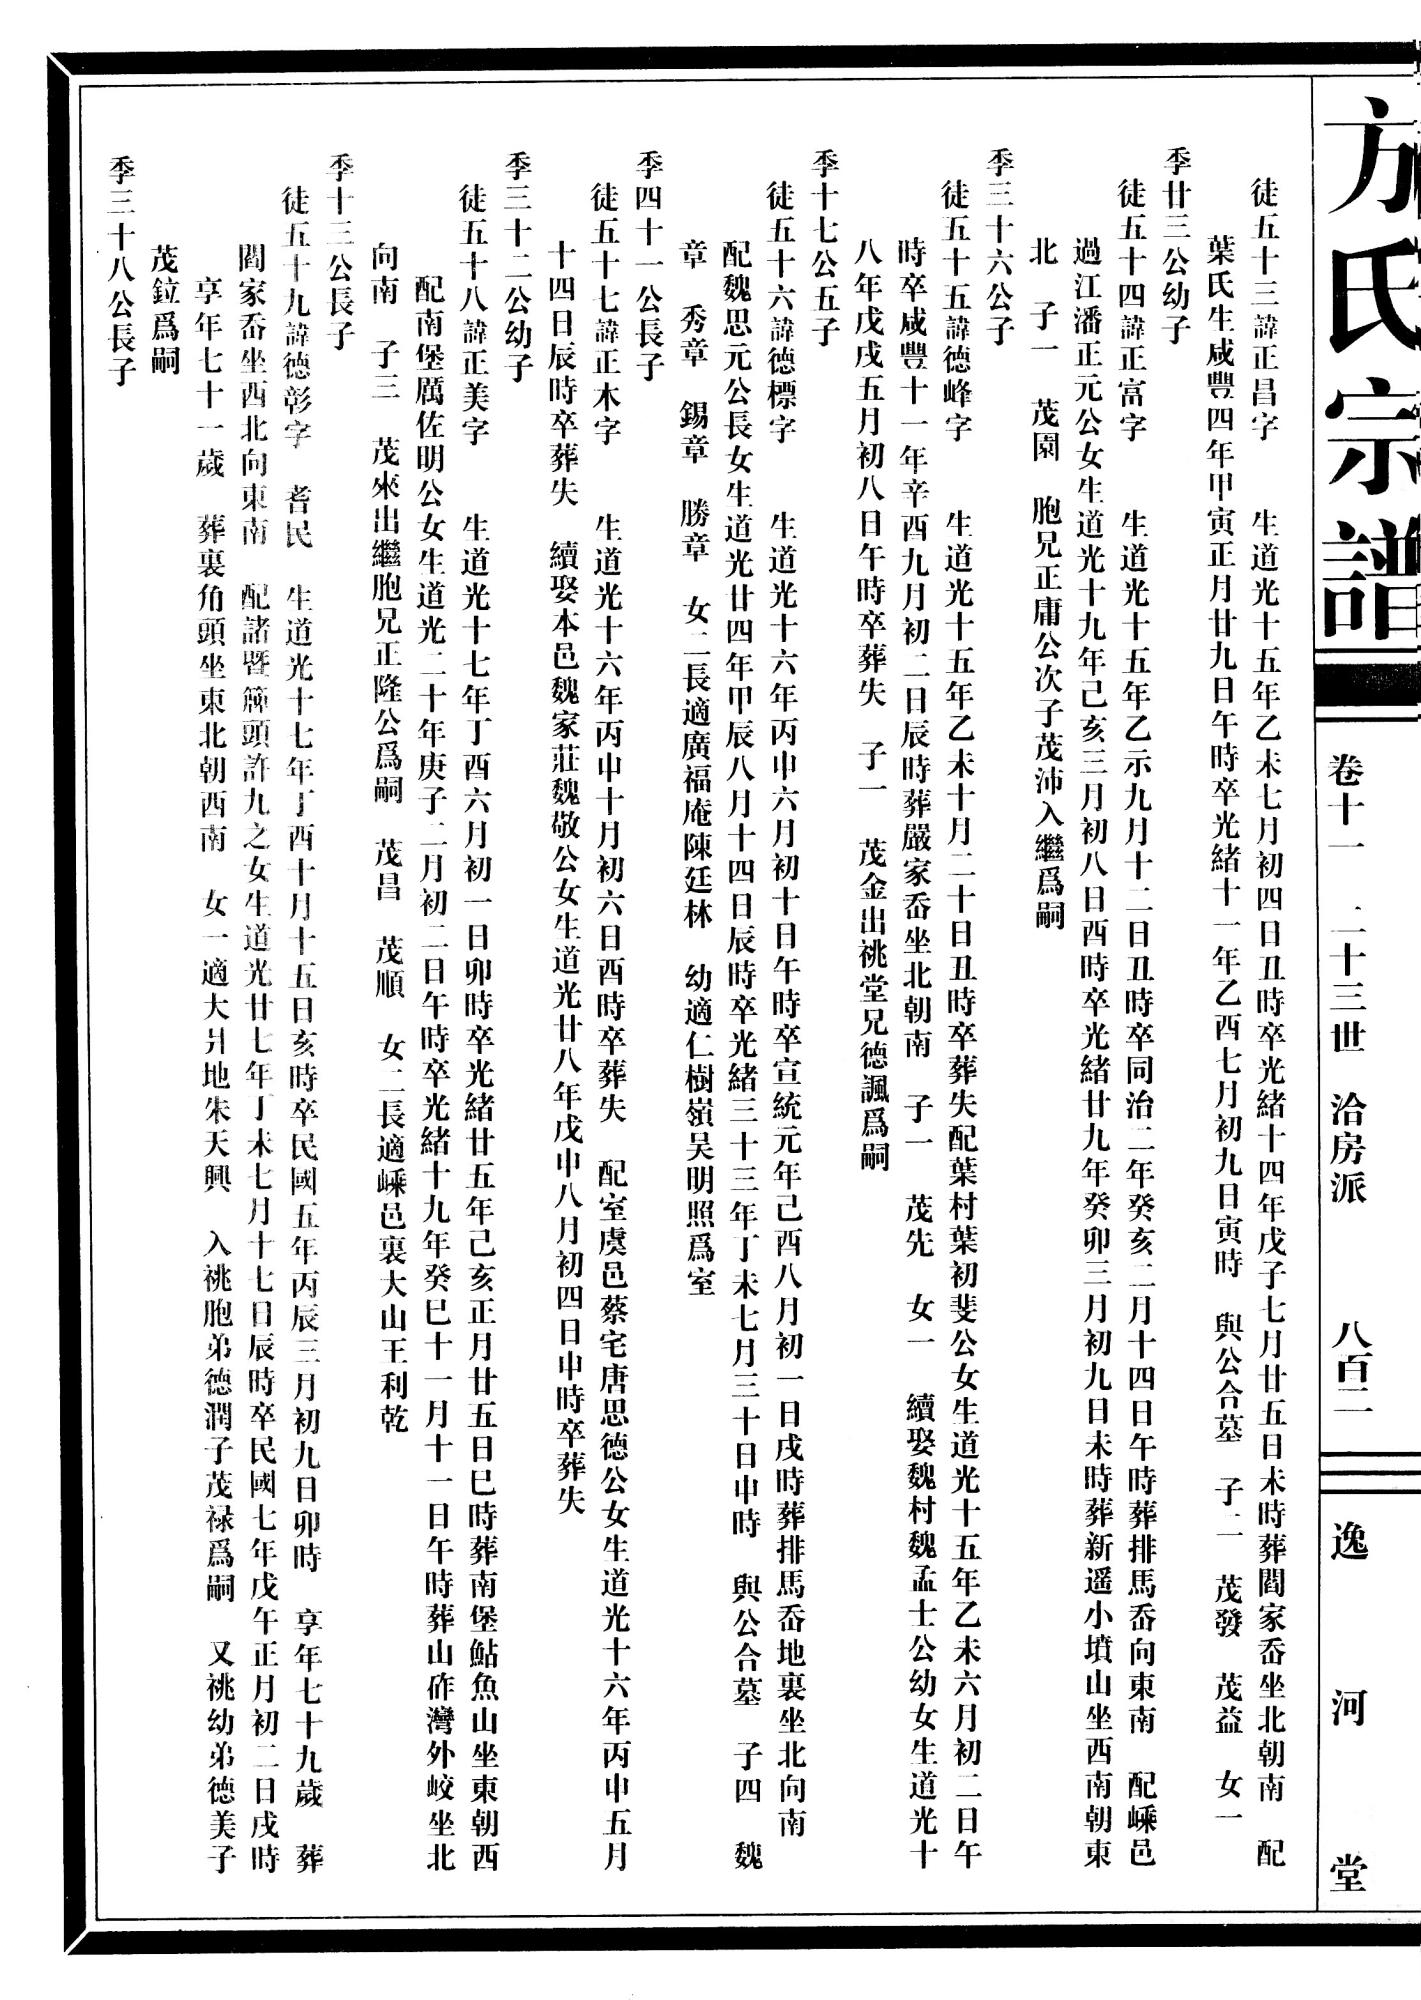 方氏宗譜
卷十一 二十三世 洽房派 八百二
逸河堂
徒五十三諱正昌字 生道光十五年乙未七月初四日丑時卒光緒十四年戊子七月廿五日未時葬閻家岙坐北朝南 配
葉氏生咸豐四年甲寅正月廿九日午時卒光緒十一年乙酉七月初九日寅時 與公合墓 子二 茂發 茂益 女一
季廿三公幼子
徒五十四諱正富字 生道光十五年乙示九月十二日丑時卒同治二年癸亥二月十四日午時葬排馬岙向東南 配嵊邑
過江潘正元公女生道光十九年己亥三月初八日酉時卒光緒廿九年癸卯三月初九日未時葬新遥小墳山坐西南朝東
北 子一 茂園 胞兄正庸公次子茂沛入繼爲嗣
季三十六公子
徒五十五諱德峰字 生道光十五年乙未十月二十日丑時卒葬失配葉村葉初斐公女生道光十五年乙未六月初二日午
時卒咸豐十一年辛酉九月初二日辰時葬嚴家岙坐北朝南 子一 茂先 女一 續娶魏村魏孟士公幼女生道光十
八年戊戌五月初八日午時卒葬失 子一 茂金出祧堂兄德諷爲嗣
季十七公五子
徒五十六諱德標字 生道光十六年丙申六月初十日午時卒宣統元年己酉八月初一日戌時葬排馬岙地裏坐北向南
配魏思元公長女生道光廿四年甲辰八月十四日辰時卒光緒三十三年丁未七月三十日申時 與公合墓 子四 魏
章 秀章 錫章 勝章 女二長適廣福庵陳廷林 幼適仁樹嶺吴明照爲室
季四十一公長子
徒五十七諱正木字 生道光十六年丙申十月初六日酉時卒葬失 配室虞邑蔡宅唐思德公女生道光十六年丙申五月
十四日辰時卒葬失 續娶本邑魏家莊魏敬公女生道光廿八年戊申八月初四日申時卒葬失
季三十二公幼子
徒五十八諱正美字 生道光十七年丁酉六月初一日卯時卒光緒廿五年己亥正月廿五日巳時葬南堡鮎魚山坐東朝西
配南堡厲佐明公女生道光二十年庚子二月初二日午時卒光緒十九年癸巳十一月十一日午時葬山砟灣外峧坐北
向南 子三 茂來出繼胞兄正隆公爲嗣 茂昌 茂順 女二長適嵊邑裏大山王利乾
季十三公長子
徒五十九諱德彰字 耆民 生道光十七年丁酉十月十五日亥時卒民國五年丙辰三月初九日卯時 享年七十九歲 葬
閻家岙坐西北向東南 配諸暨簰頭許九之女生道光廿七年丁未七月十七日辰時卒民國七年戊午正月初二日戌時
享年七十一歲 葬裏角頭坐東北朝西南 女一適大爿地朱天興 入祧胞弟德潤子茂禄爲嗣 又祧幼弟德美子
茂鉝爲嗣
季三十八公長子